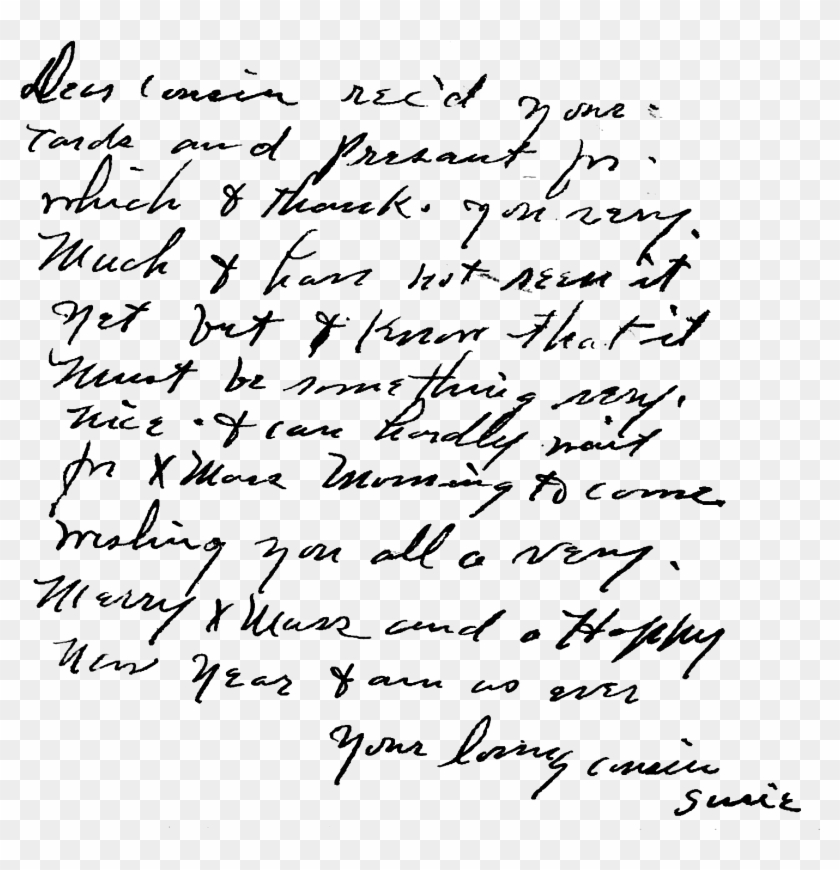 Dear Cousin rec'd your
Cards and Presant for
which I thank. you very.
Much I have not seen it
yet but I know that it
Must be something very.
nice. I can hardly wait
for X Mass Morning to come
wishing you all a very.
Merry X Mass and a Happy
New Year I am as ever
Your loving cousin
Susie